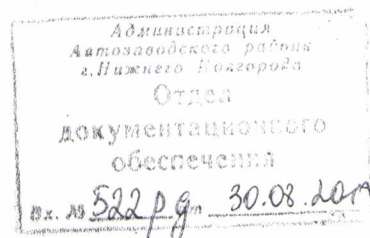 Администрация
Автозаводского района
г.Нижнего Новгорода
Отдел
документационного
обеспечения
Вх. № 522 рд от 30.08.201